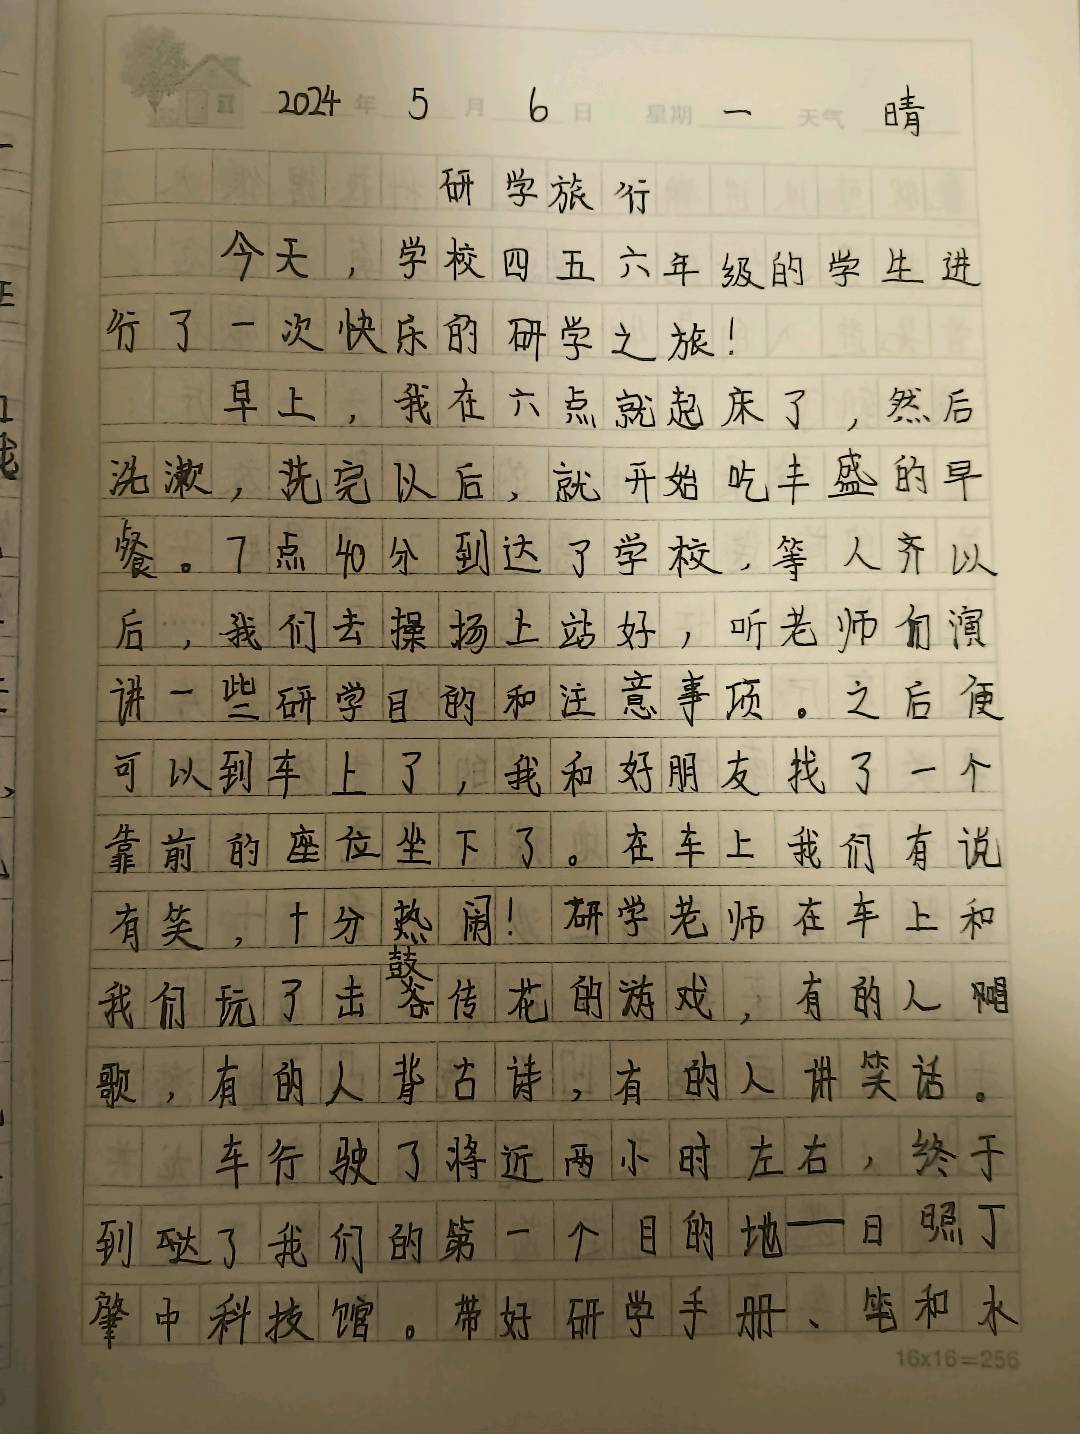 2024年 5月 6日 星期 一 天气 晴
研学旅行
今天，学校四五六年级的学生进
行了一次快乐的研学之旅！
早上，我在六点就起床了，然后
洗漱，洗完以后，就开始吃丰盛的早
餐。7点40分到达了学校，等人齐以
后，我们去操场上站好，听老师们演
讲一些研学目的和注意事项。之后便
可以到车上了，我和好朋友找了一个
靠前的座位坐下了。在车上我们有说
有笑，十分热闹！研学老师在车上和
我们玩了击鼓传花的游戏，有的人唱
歌，有的人背古诗，有的人讲笑话。
车行驶了将近两小时左右，终于
到达了我们的第一个目的地——日照丁
肇中科技馆。带好研学手册、笔和水
16x16=256